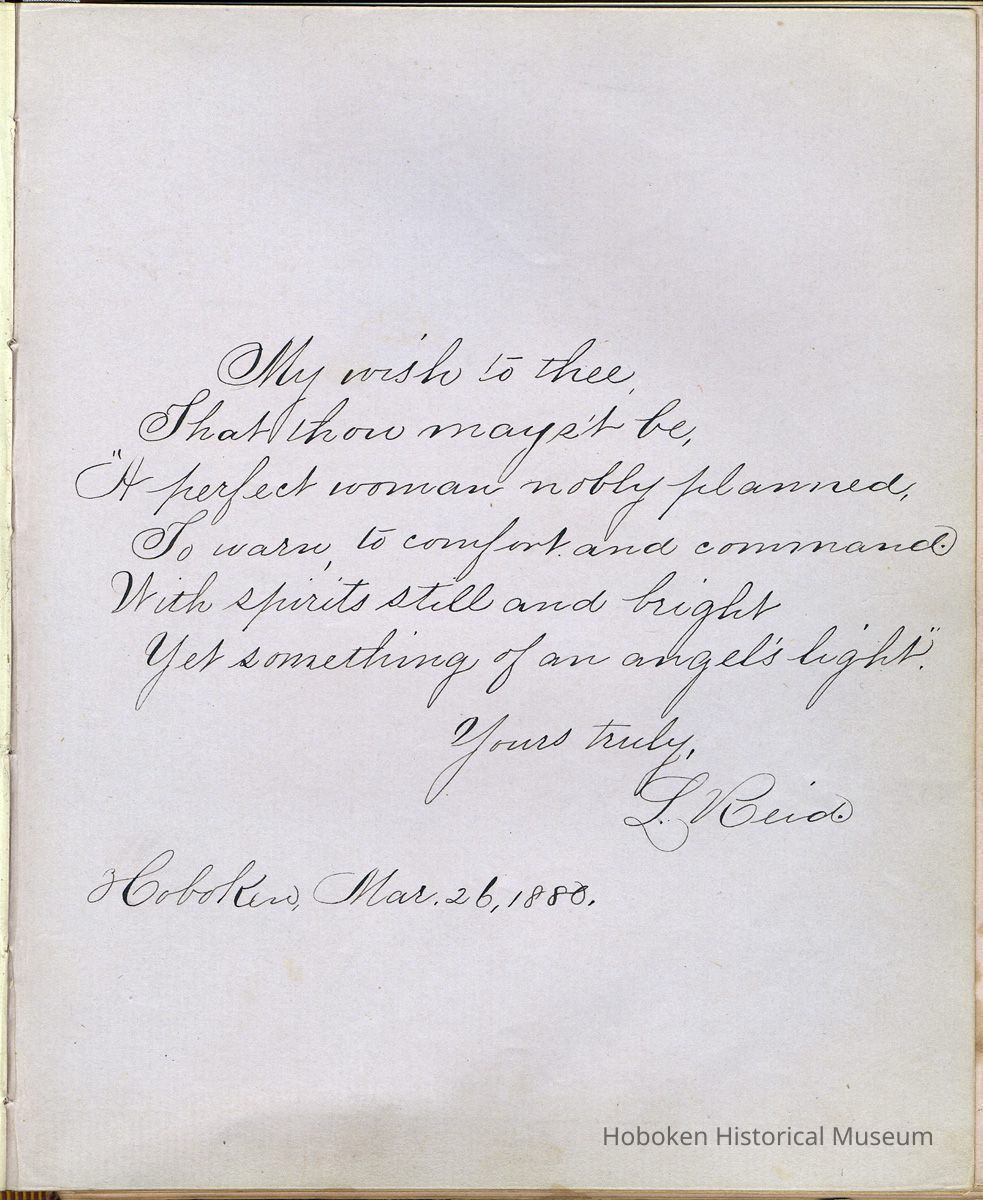 My wish to thee,
That thou mays't be,
"A perfect woman nobly planned,
To warn, to comfort and command.
With spirits still and bright
Yet something of an angel's light".
Yours truly,
L. Reid.
Hoboken, Mar. 26, 1880.
Hoboken Historical Museum